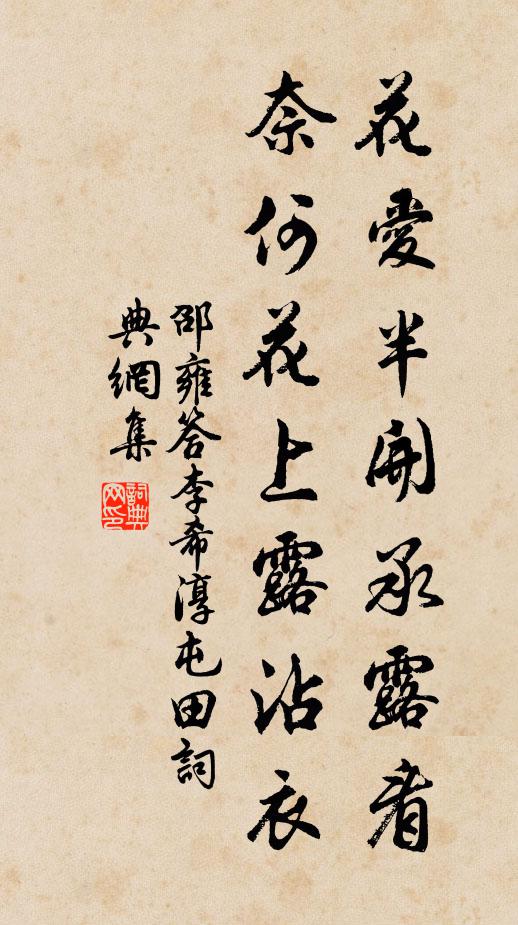 花愛半開承露看
奈何花上露沾衣
邵雍答李希淳屯田詞
典網集
詞典
网印